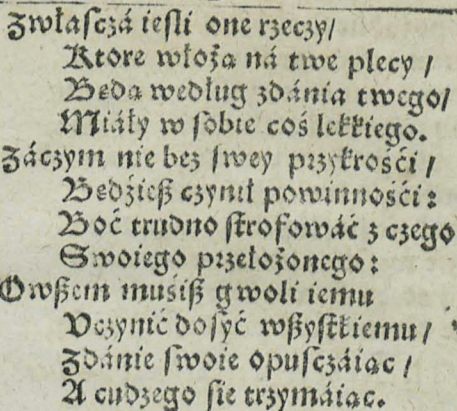 Zwłaſczá ieſli one rzeczy/
Ktore włożą ná twe plecy /
Będą według zdánia twego/
Miáły w ſobie coś lekkiego.
Záczym nie bez ſwey przykrośći /
Będźieß czynił powinnośći:
Boć trudno ſtrofowáć z czego
Swoiego przełożonego:
Owßem muśiß gwoli iemu
Vczynić dosyć wßyſtkiemu /
Zdánie ſwoie opuſczáiąc /
A cudzego ſie trzymáiąc.